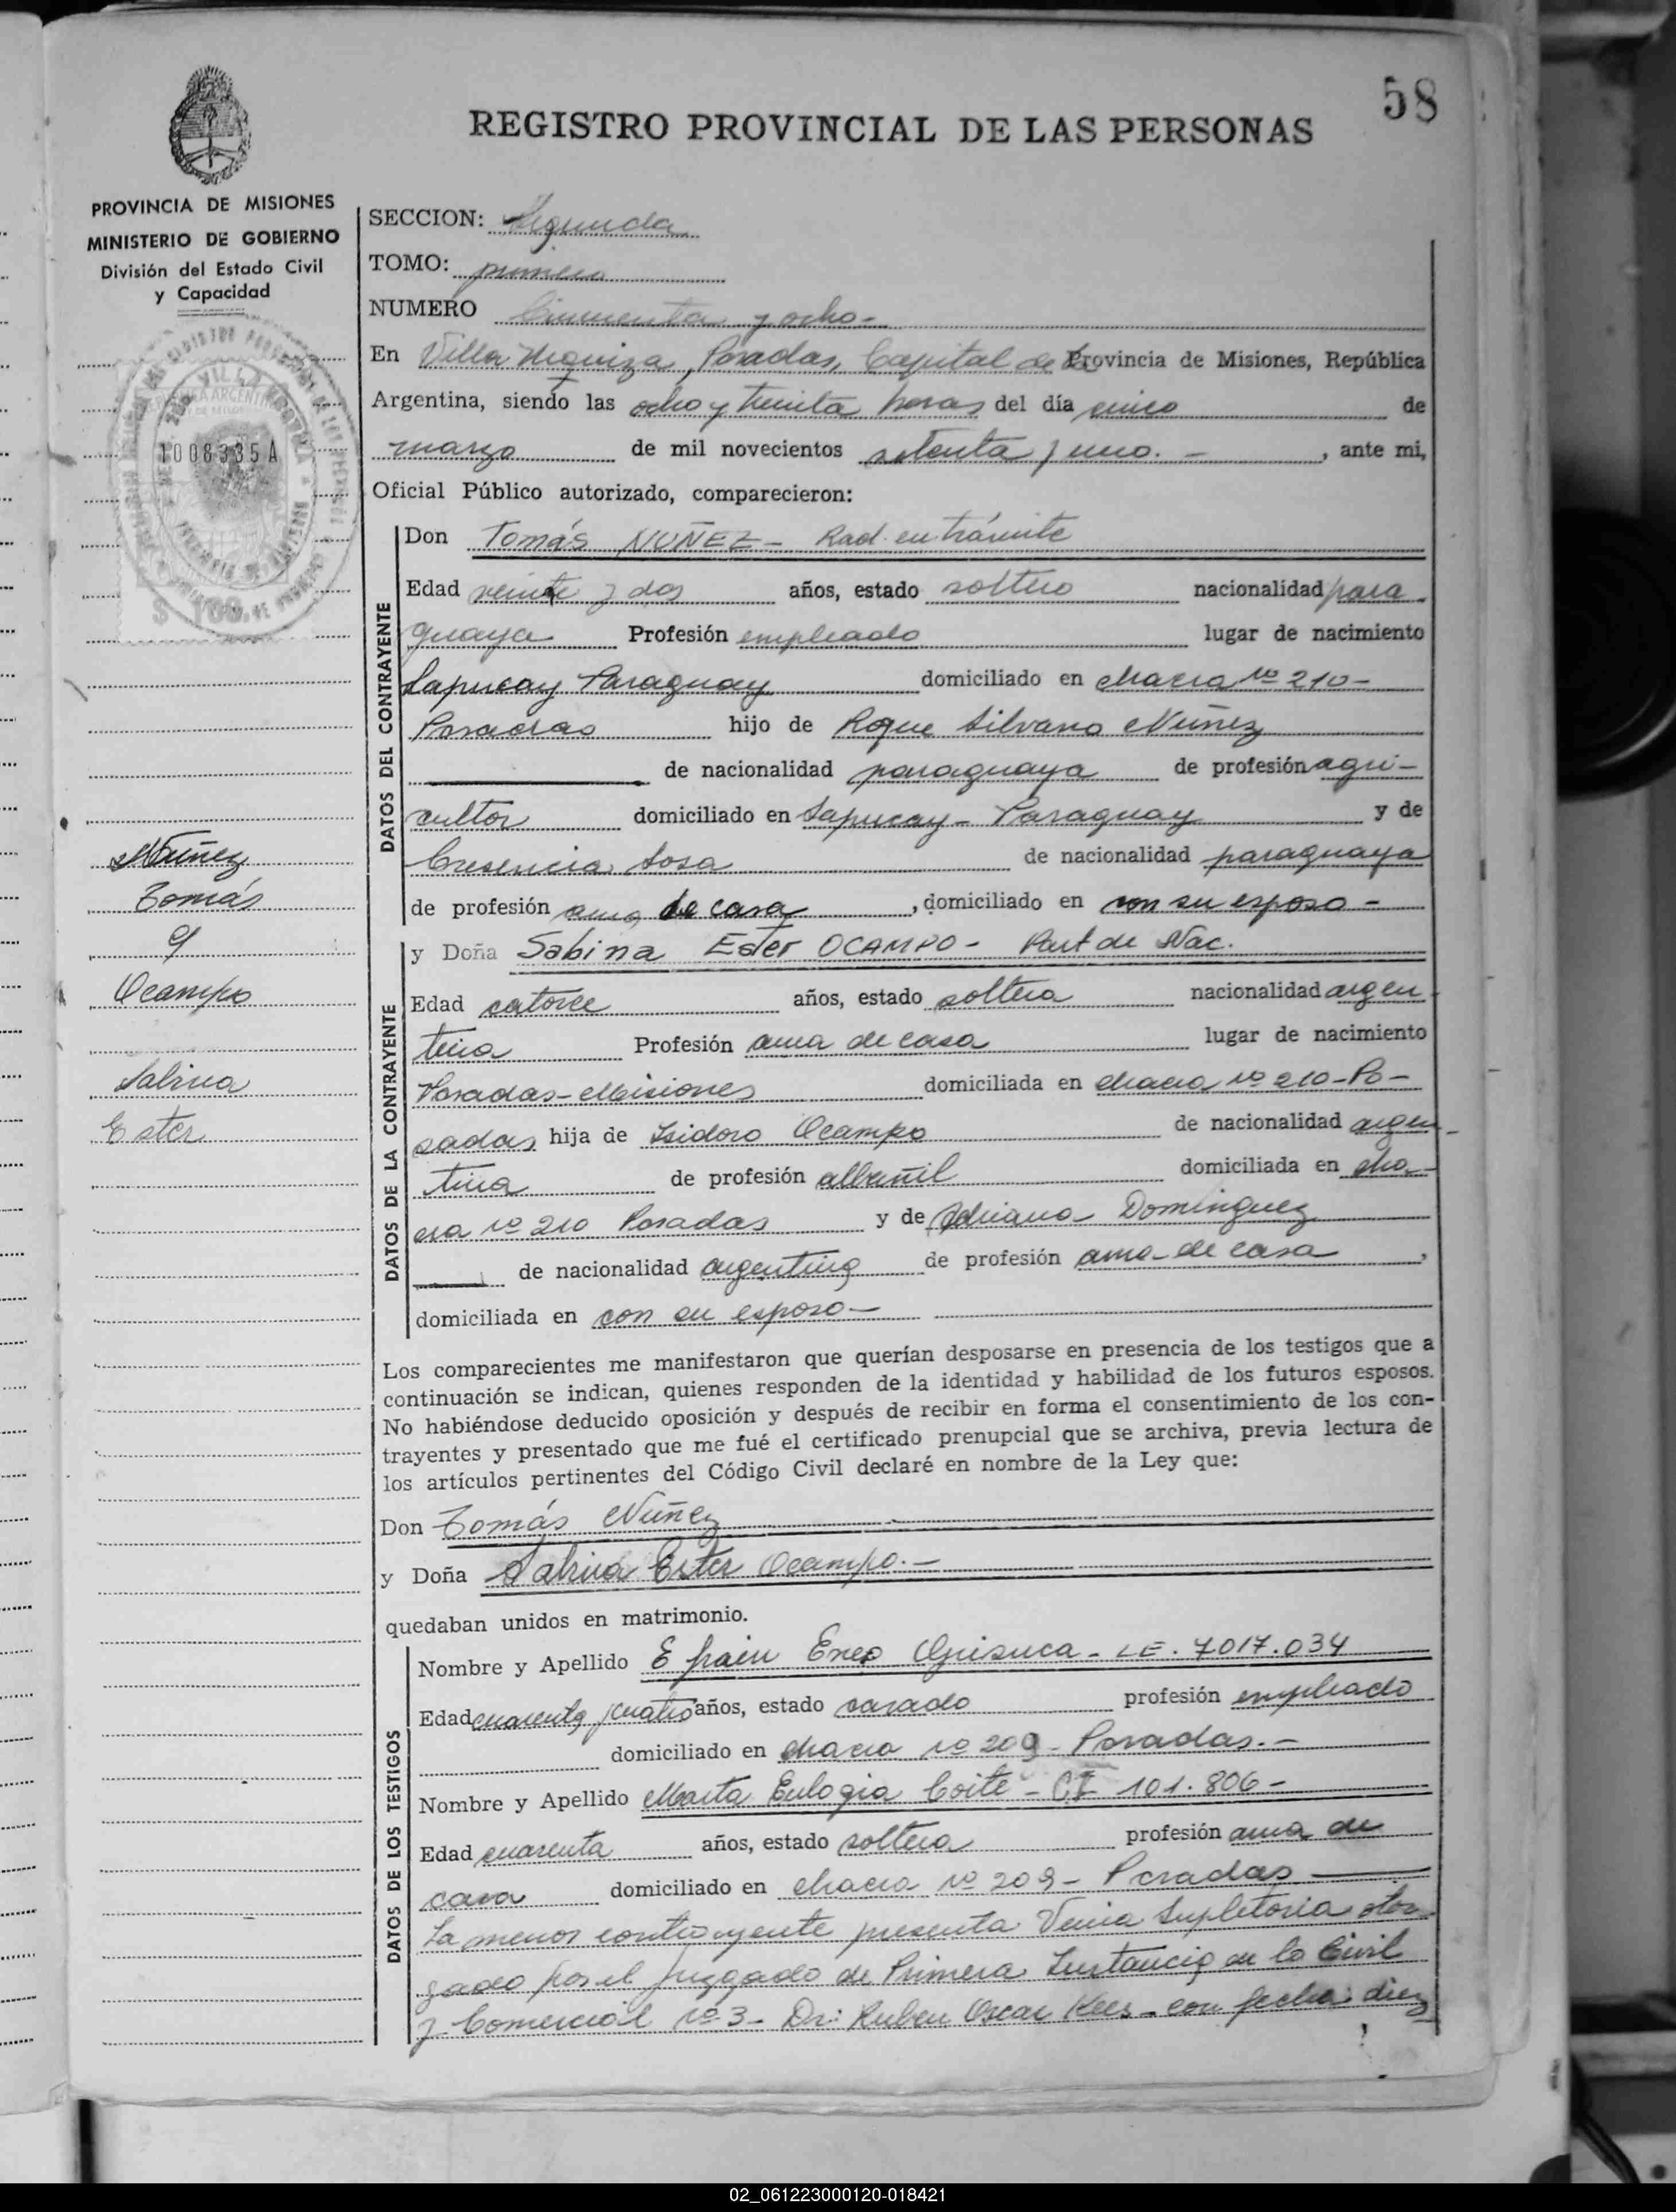 58
REGISTRO PROVINCIAL DE LAS PERSONAS
PROVINCIA DE MISIONES
MINISTERIO DE GOBIERNO
División del Estado Civil
y Capacidad
1008335A
$ 100.
Núñez
Tomás
y
Ocampo
Sabina
Ester
SECCION: Segunda
TOMO: primero
NUMERO Cincuenta y ocho-
En Villa Urquiza, Posadas, Capital de la Provincia de Misiones, República
Argentina, siendo las ocho y treinta horas del día cinco de
marzo de mil novecientos setenta y uno. - , ante mi,
Oficial Público autorizado, comparecieron:
DATOS DEL CONTRAYENTE
Don Tomás NUÑEZ - Rad. en trámite
Edad veinte y dos años, estado soltero nacionalidad para
guaya Profesión empleado lugar de nacimiento
Sapucay Paraguay domiciliado en chacra nº 210-
Posadas hijo de Roque Silvano Núñez
de nacionalidad paraguaya de profesión agri-
cultor domiciliado en Sapucay - Paraguay y de
Cresencia Sosa de nacionalidad paraguaya
de profesión ama de casa , domiciliado en con su esposo -
DATOS DE LA CONTRAYENTE
y Doña Sabina Ester OCAMPO - Part de Nac.
Edad catorce años, estado soltera nacionalidad argen
tina Profesión ama de casa lugar de nacimiento
Posadas-Misiones domiciliada en chacra nº 210-Po-
sadas hija de Isidoro Ocampo de nacionalidad argen-
tina de profesión albañil domiciliada en cha-
cra nº 210 Posadas y de Adriana Dominguez
de nacionalidad argentina de profesión ama de casa ,
domiciliada en con su esposo -
Los comparecientes me manifestaron que querían desposarse en presencia de los testigos que a
continuación se indican, quienes responden de la identidad y habilidad de los futuros esposos.
No habiéndose deducido oposición y después de recibir en forma el consentimiento de los con-
trayentes y presentado que me fué el certificado prenupcial que se archiva, previa lectura de
los artículos pertinentes del Código Civil declaré en nombre de la Ley que:
Don Tomás Núñez
y Doña Sabina Ester Ocampo. -
quedaban unidos en matrimonio.
DATOS DE LOS TESTIGOS
Nombre y Apellido Efrain - LE. 7.017.034
Edad cuarenta y cuatro años, estado casado profesión empleado
domiciliado en chacra nº 209 - Posadas. -
Nombre y Apellido Marta Eulogia Coite - CI 101.806 -
Edad cuarenta años, estado soltera profesión ama de
casa domiciliado en chacra nº 209 - Posadas
La menor contrayente presenta Venia Supletoria otor
gado por el Juzgado de Primera Instancia en lo Civil
y Comercial nº 3 - Dr: Ruben Oscar Kees - con fecha: diez
02_061223000120-018421